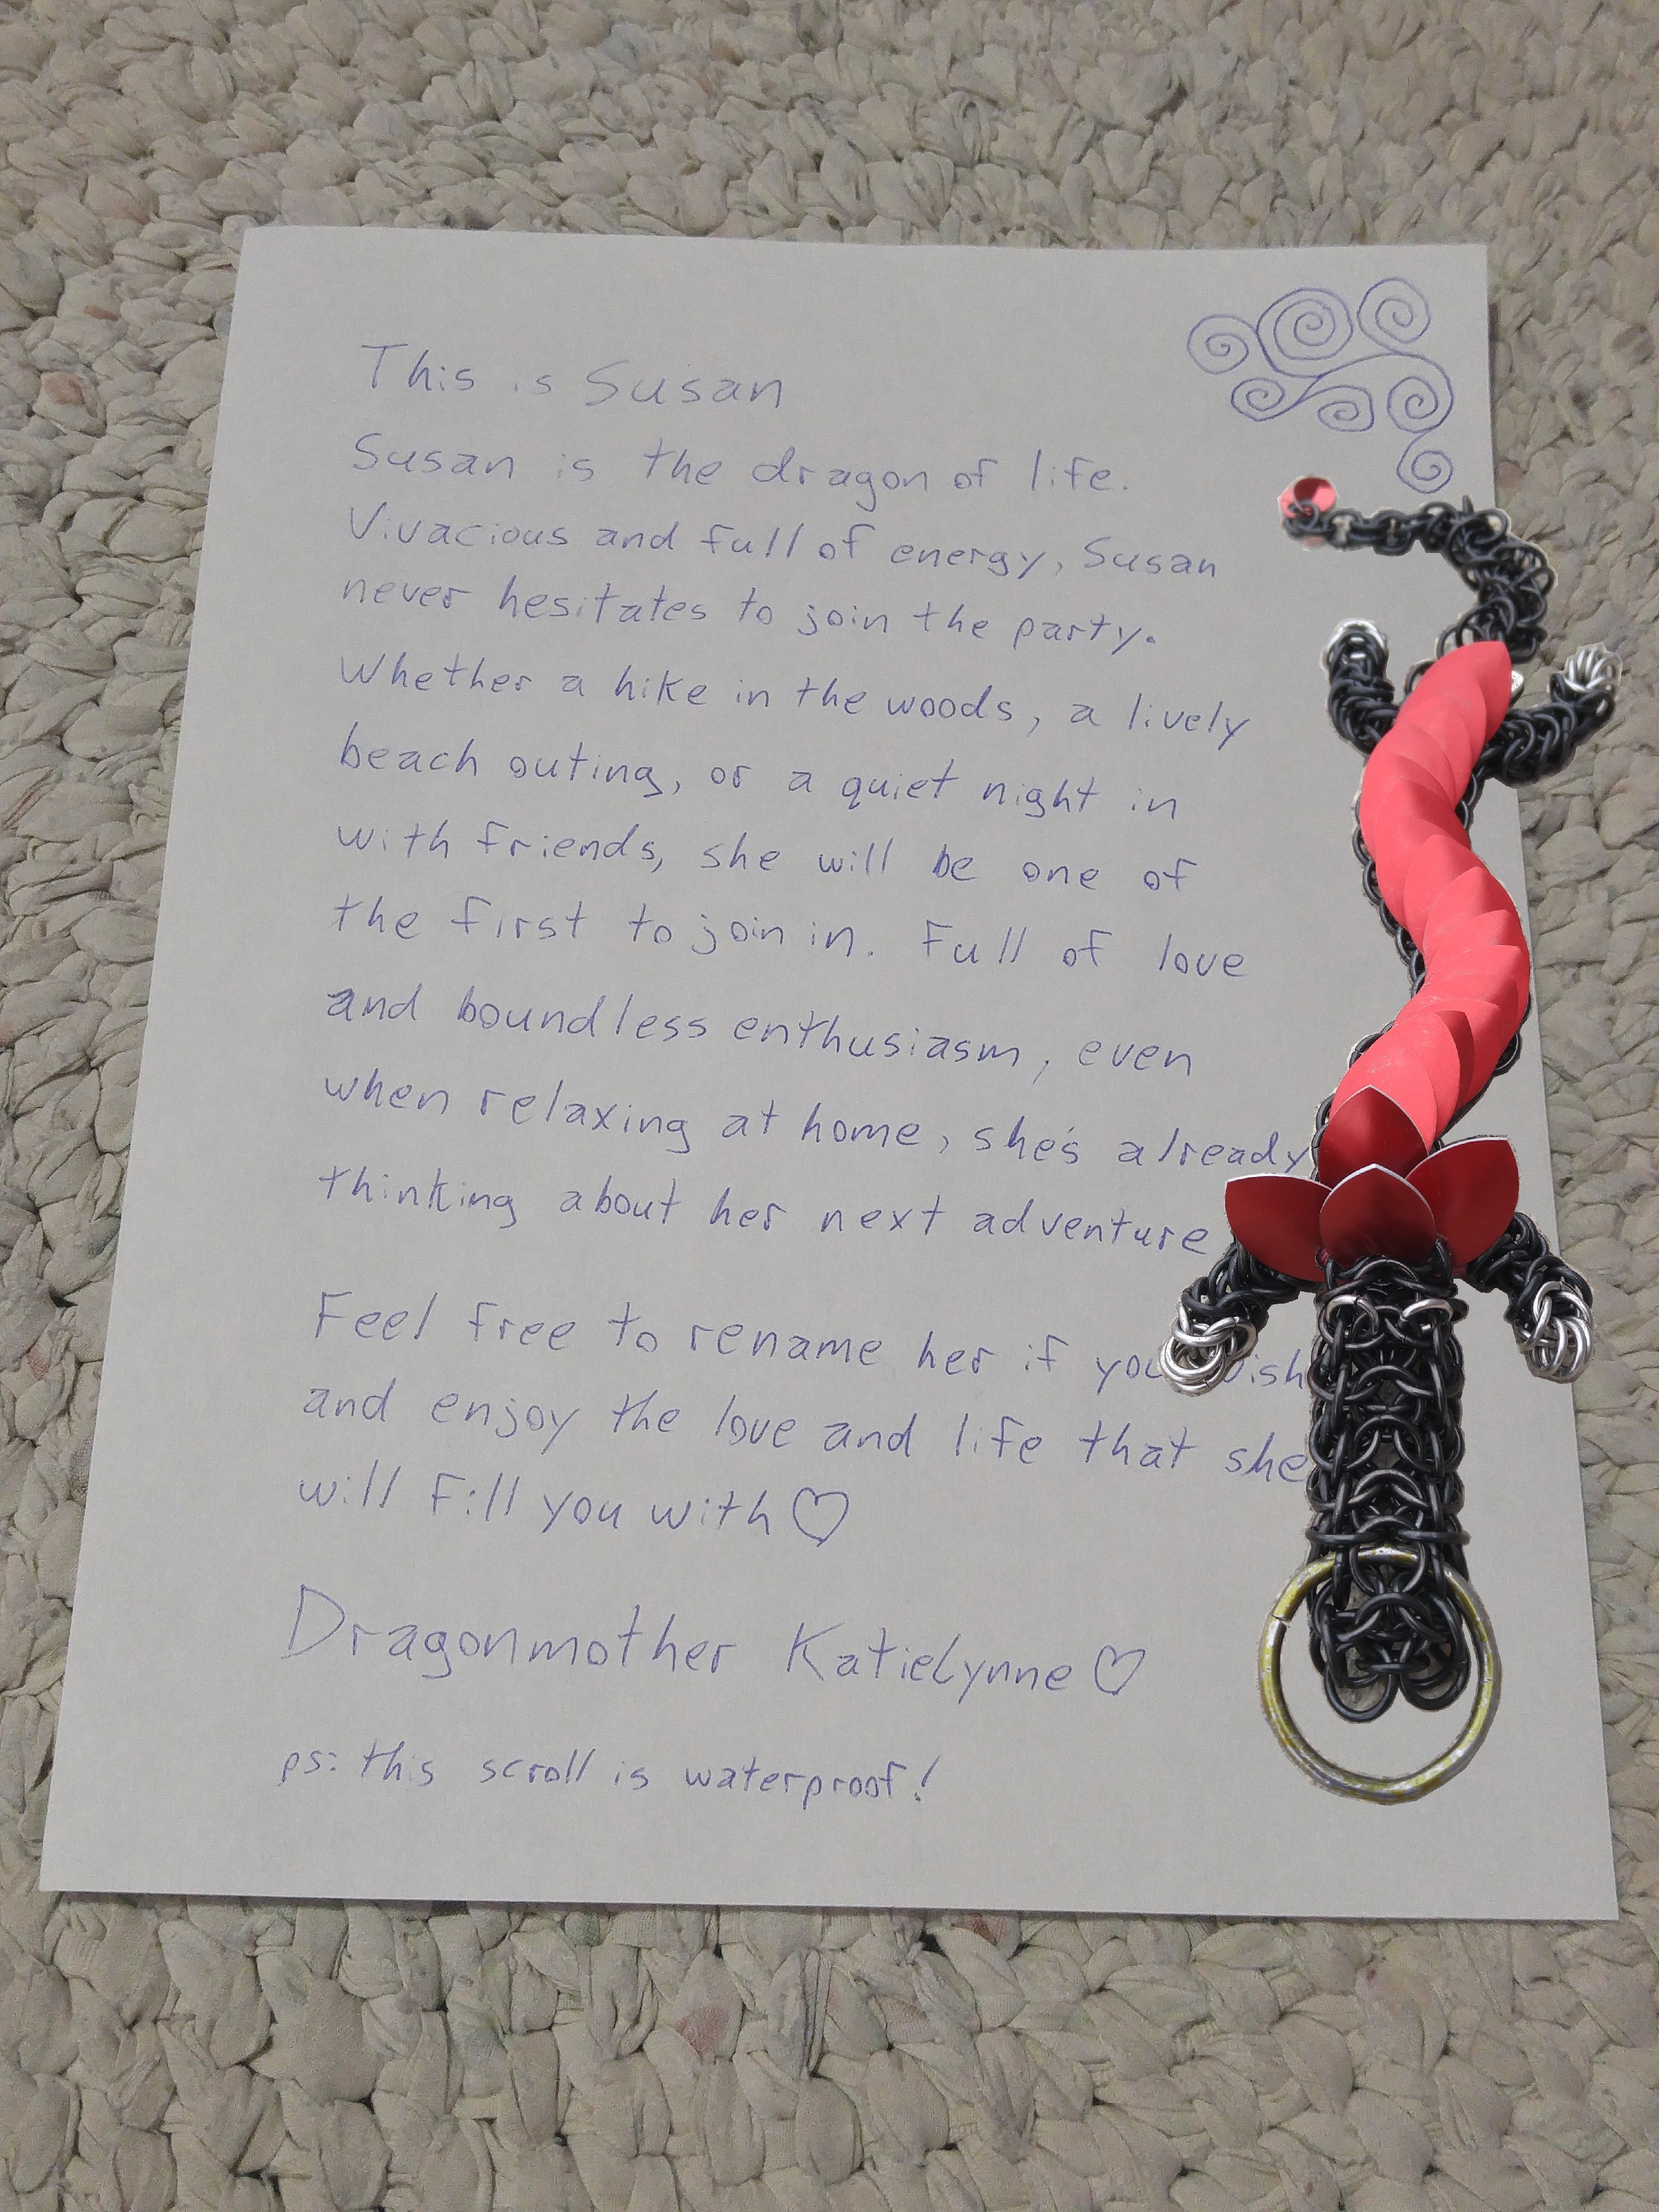 This is Susan
Susan is the dragon of life.
Vivacious and full of energy, Susan
never hesitates to join the party.
Whether a hike in the woods, a lively
beach outing, or a quiet night in
with friends, she will be one of
the first to join in. Full of love
and boundless enthusiasm, even
when relaxing at home, she's already
thinking about her next adventure
Feel free to rename her if you wish
and enjoy the love and life that she
will fill you with ♡
Dragonmother KatieLynne ♡
ps: this scroll is waterproof!